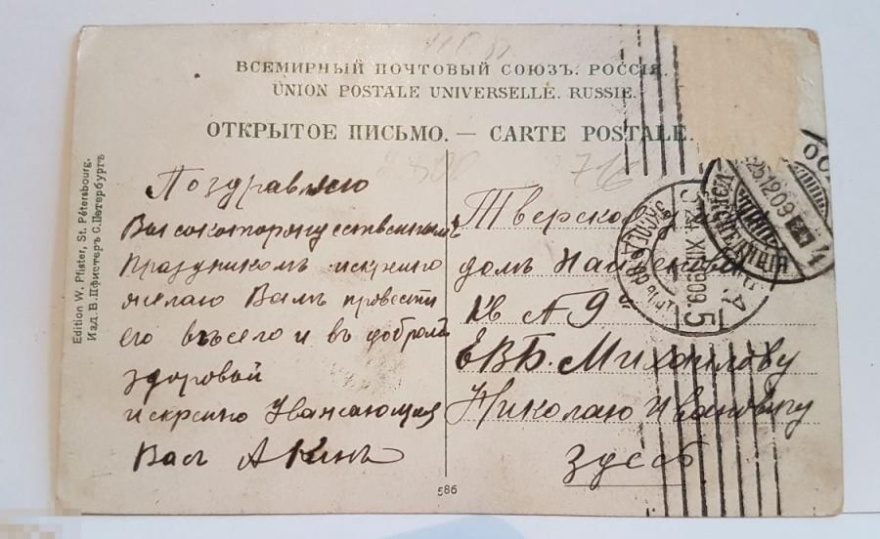 ВСЕМИРНЫЙ ПОЧТОВЫЙ СОЮЗЪ. РОССІЯ.
UNION POSTALE UNIVERSELLE. RUSSIE.
ОТКРЫТОЕ ПИСЬМО. — CARTE POSTALE.
716
Edition W. Pfister, St. Pétersbourg.
Изд. В. Пфистеръ С.Петербургъ
Поздравляю
Вас
Праздникомъ искрино
желаю Вамъ провести
его въсело и въ доброй
здоровой
искрино
Васъ Акинъ
Тверская
домъ
Кв № 9
ЕВБ. Михайлову
Николаю Ивановичу
Здесь
25.12.09
24 XII 1909
5
4
586